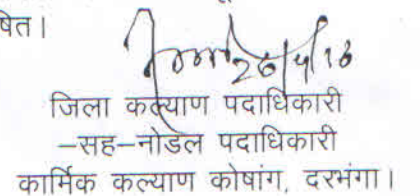 षित।
26/4/18
जिला कल्याण पदाधिकारी
-सह-नोडल पदाधिकारी
कार्मिक कल्याण कोषांग, दरभंगा।